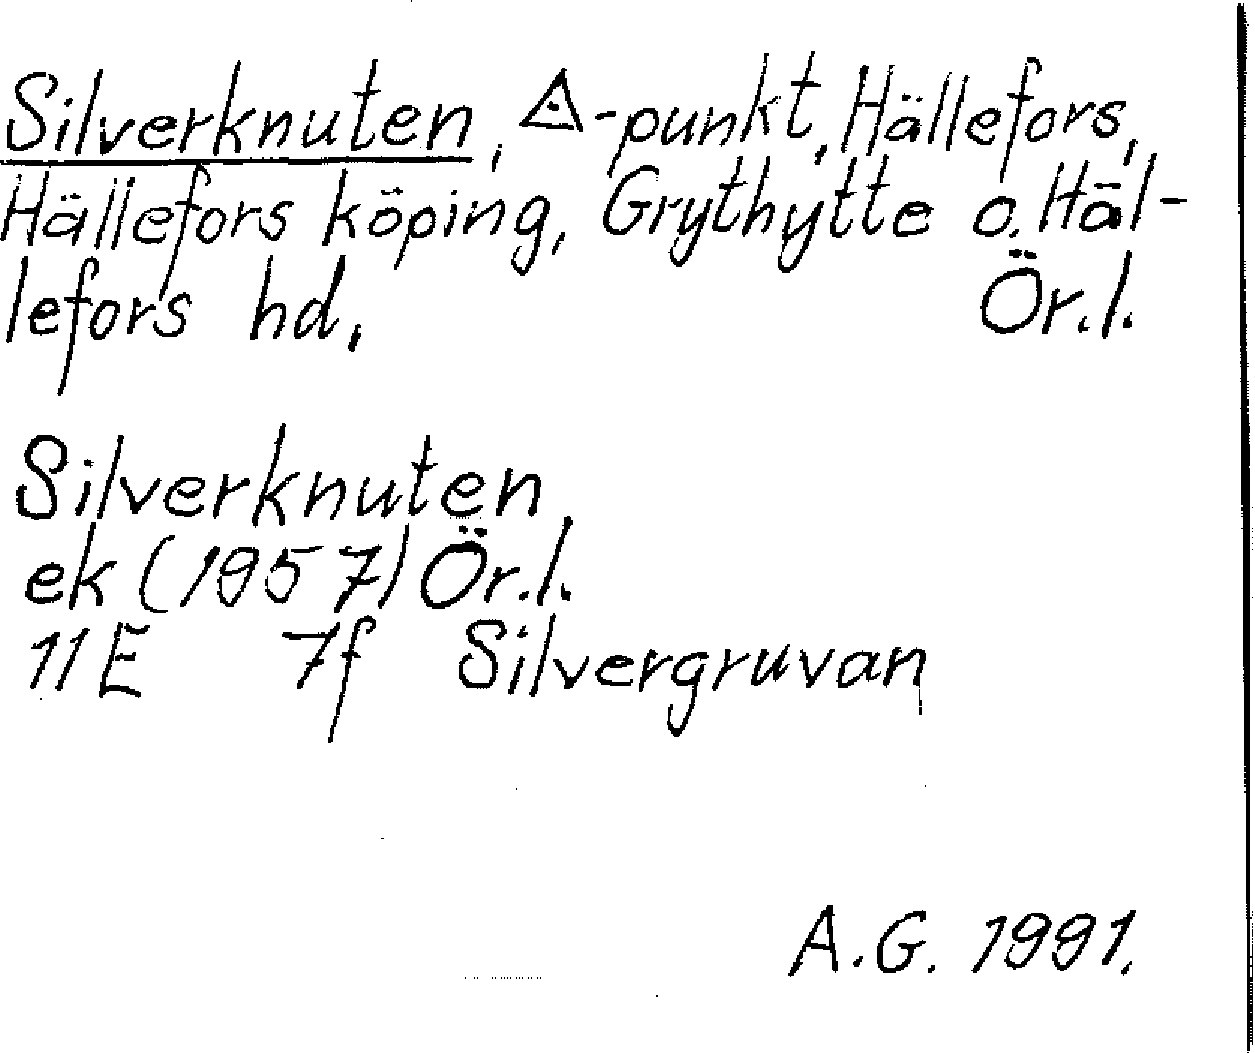 Silverknuten, △-punkt, Hällefors,
Hällefors köping, Grythytte o. Häl-
lefors hd, Ör.l.
Silverknuten,
ek (1957) Ör.l.
11E 7f Silvergruvan
A.G. 1991.